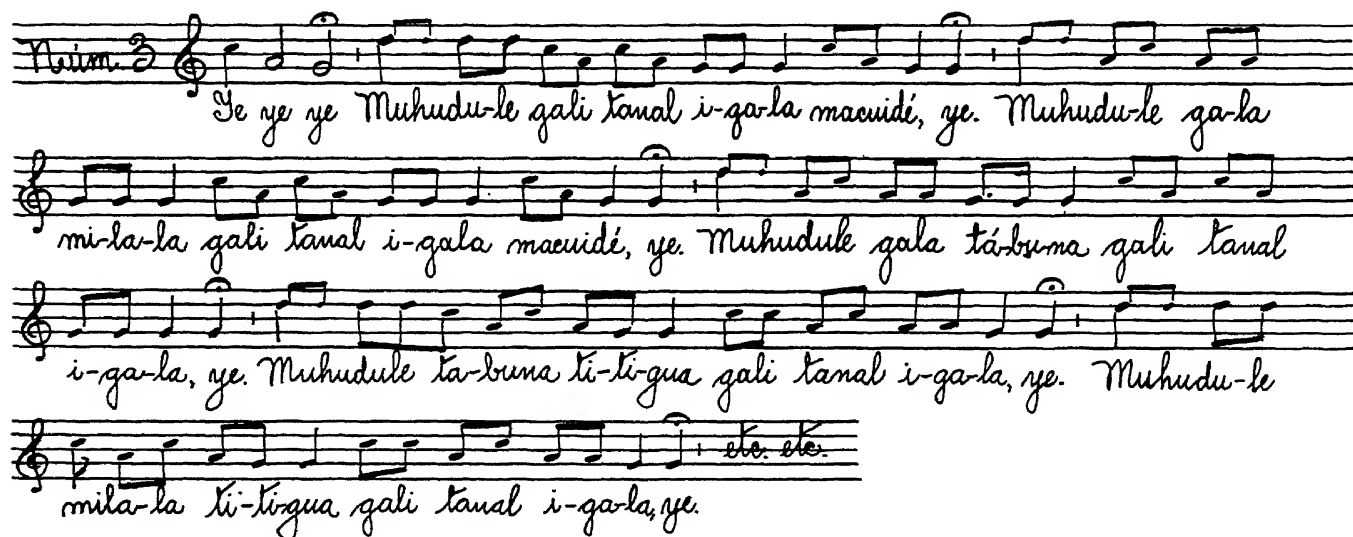 Núm. 3
Ye ye ye Muhudu-le gali tanal i-ga-la macuidé, ye. Muhudu-le ga-la
mi-la-la gali tanal i-gala macuidé, ye. Muhudule gala tá-buma gali tanal
i-ga-la, ye. Muhudule ta-buna ti-ti-gua gali tanal i-ga-la, ye. Muhudu-le
etc. etc.
mila-la ti-ti-gua gali tanal i-ga-la, ye.